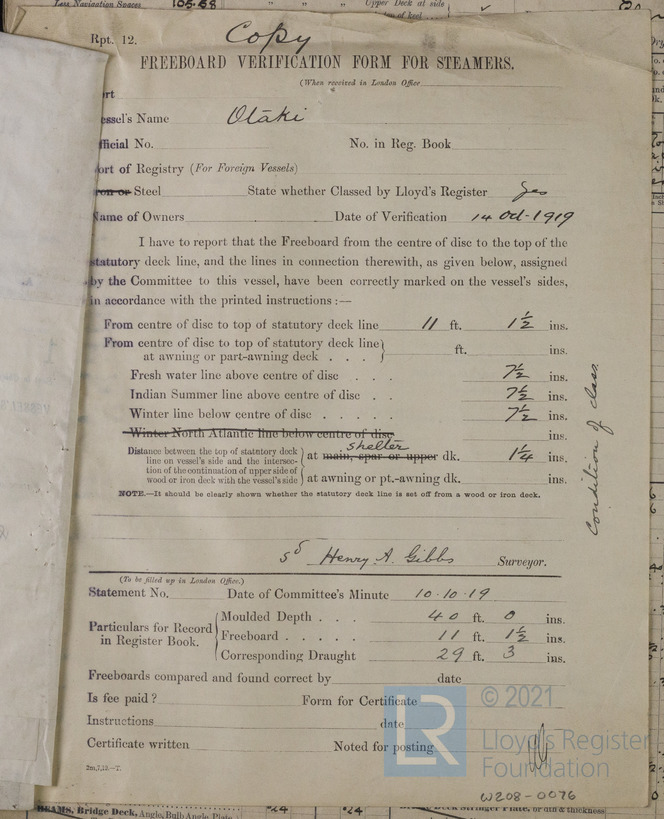 Less Navigation Spaces 105.58 Upper Deck at side
of keel
Rpt. 12. Copy
FREEBOARD VERIFICATION FORM FOR STEAMERS.
(When received in London Office
rt
essel's Name Otaki
fficial No. No. in Reg. Book
ort of Registry (For Foreign Vessels)
Iron or Steel State whether Classed by Lloyd's Register Yes
Name of Owners Date of Verification 14 Oct-1919
I have to report that the Freeboard from the centre of disc to the top of the
statutory deck line, and the lines in connection therewith, as given below, assigned
by the Committee to this vessel, have been correctly marked on the vessel's sides,
in accordance with the printed instructions :—
From centre of disc to top of statutory deck line 11 ft. 1½ ins.
From centre of disc to top of statutory deck line
at awning or part-awning deck . . . ft. ins.
Fresh water line above centre of disc . . . 7½ ins.
Indian Summer line above centre of disc . . 7½ ins.
Winter line below centre of disc . . . . . 7½ ins.
Winter North Atlantic line below centre of disc ins.
shelter
Distance between the top of statutory deck
line on vessel's side and the intersec- at main, spar or upper dk. 1¼ ins.
tion of the continuation of upper side of
wood or iron deck with the vessel's side at awning or pt.-awning dk. ins.
NOTE.—It should be clearly shown whether the statutory deck line is set off from a wood or iron deck.
Condition of class
sd Henry A. Gibbs Surveyor.
(To be filled up in London Office.)
Statement No. Date of Committee's Minute 10.10.19
Moulded Depth . . . 40 ft. 0 ins.
Particulars for Record
in Register Book. Freeboard . . . . . 11 ft. 1½ ins.
Corresponding Draught 29 ft. 3 ins.
Freeboards compared and found correct by date
Is fee paid ? Form for Certificate
Instructions date
Certificate written Noted for posting
2m,7,13.—T.
LR © 2021
Lloyd's Register
Foundation
W208-0076
BEAMS, Bridge Deck, Angle, Bulb Angle, Plate